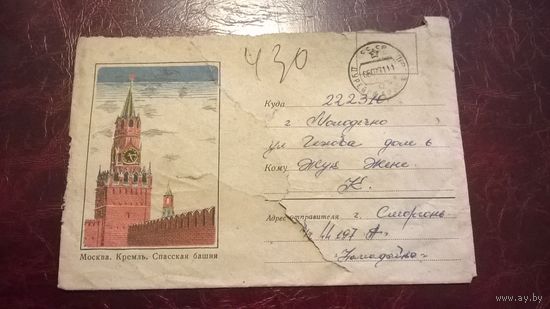 430
СССР
Куда 222310
г Молодечно
ул Чехова дом 6
Кому Жук Жене
К.
Адрес отправителя г. Сморгонь
197 А
Москва. Кремль. Спасская башня
www.ay.by